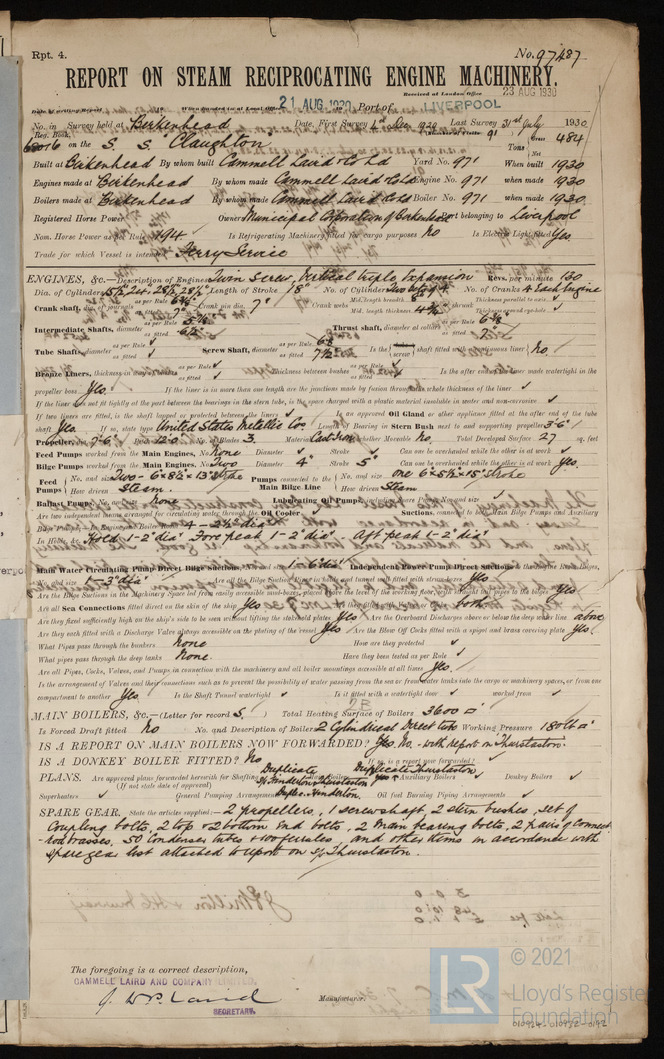 Rpt. 4. No. 97487
REPORT ON STEAM RECIPROCATING ENGINE MACHINERY.
Received at London Office 23 AUG 1930
Date of writing Report 19 When handed in at Local Office 21 AUG. 1930 Port of LIVERPOOL
No. in Survey held at Birkenhead Date, First Survey 4th Dec. 1929 Last Survey 31st July 1930
Reg. Book.
68016 on the S. S. Claughton Tons Gross 484 Net
Built at Birkenhead By whom built Cammell Laird & Co Ld Yard No. 971 When built 1930
Engines made at Birkenhead By whom made Cammell Laird & Co Ld Engine No. 971 when made 1930
Boilers made at Birkenhead By whom made Cammell Laird & Co Ld Boiler No. 971 when made 1930
Registered Horse Power Owners Municipal Corporation of Birkenhead Port belonging to Liverpool
Nom. Horse Power as per Rule 194 Is Refrigerating Machinery fitted for cargo purposes No Is Electric Light fitted Yes
Trade for which Vessel is intended Ferry Service
ENGINES, &c.—Description of Engines Twin screw, Vertical triple expansion Revs. per minute 130
Dia. of Cylinders Length of Stroke 18" No. of Cylinders No. of Cranks 4 Each Engine
Crank shaft, dia. of journals as per Rule as fitted 7" Crank pin dia. 7" Crank webs
Intermediate Shafts, diameter as per Rule as fitted Thrust shaft, diameter at collars as per Rule as fitted
Tube Shafts, diameter as per Rule as fitted Screw Shaft, diameter as per Rule as fitted 7½ Is the shaft fitted with a continuous liner No
Bronze Liners, thickness in way of bushes as per Rule as fitted Thickness between bushes as per Rule as fitted Is the after end of the liner made watertight in the
propeller boss Yes. If the liner is in more than one length are the joints made by fusion through the whole thickness of the liner
If the liner does not fit tightly at the part between the bearings in the stern tube, is the space charged with a plastic material insoluble in water and non-corrosive
If two liners are fitted, is the shaft lapped or protected between the liners Is an approved Oil Gland or other appliance fitted at the after end of the tube
shaft Yes. If so, state type United States Metallic Co. Length of Bearing in Stern Bush next to and supporting propeller 3'-6"
Propeller, dia. 7'-6" Pitch 12-0 No. of Blades 3. Material Cast Iron whether Moveable No. Total Developed Surface 27 sq. feet
Feed Pumps worked from the Main Engines, No. None Diameter Stroke Can one be overhauled while the other is at work
Bilge Pumps worked from the Main Engines, No. Two Diameter 4" Stroke 5" Can one be overhauled while the other is at work Yes.
Feed Pumps No. and size Two - 6" x 8½" x 13" stroke Pumps connected to the Main Bilge Line No. and size One 6" x 5½" x 15" stroke
How driven Steam. How driven Steam
Ballast Pumps, No. and size None Lubricating Oil Pumps, including Spare Pump, No. and size
Are two independent means arranged for circulating water through the Oil Cooler Suctions, connected to both Main Bilge Pumps and Auxiliary
Boiler Room 4 - 2½" dia
In Holds, &c. Hold 1-2" dia Fore peak 1-2" dia Aft peak 1-2" dia
Main Water Circulating Pump Direct Bilge Suctions, 1-6" dia Independent Power Pump Direct Suctions to the Engine Room Bilges,
No. and size 1-3" dia Are all the Bilge Suction Pipes in holds and tunnel well fitted with strum-boxes Yes
Are the Bilge Suctions in the Machinery Space led from easily accessible mud-boxes, placed above the level of the working floor, with straight tail pipes to the bilges Yes
Are all Sea Connections fitted direct on the skin of the ship Yes both
Are they fixed sufficiently high on the ship's side to be seen without lifting the stokehold plates Yes Are the Overboard Discharges above or below the deep water line above
Are they each fitted with a Discharge Valve always accessible on the plating of the vessel Yes Are the Blow Off Cocks fitted with a spigot and brass covering plate Yes.
What Pipes pass through the bunkers None How are they protected
What pipes pass through the deep tanks None. Have they been tested as per Rule
Are all Pipes, Cocks, Valves, and Pumps in connection with the machinery and all boiler mountings accessible at all times Yes.
Is the arrangement of Valves and their connections such as to prevent the possibility of water passing from the sea or from water tanks into the cargo or machinery spaces, or from one
compartment to another Yes. Is the Shaft Tunnel watertight Is it fitted with a watertight door worked from
MAIN BOILERS, &c.—(Letter for record S.) Total Heating Surface of Boilers 3600
Is Forced Draft fitted No No. and Description of Boilers 2 Cylindrical Direct tube Working Pressure 180 lb
IS A REPORT ON MAIN BOILERS NOW FORWARDED? Yes, No. - with report on "Thurstaston".
IS A DONKEY BOILER FITTED? No If so, is a report now forwarded?
PLANS. Are approved plans forwarded herewith for Shafting Duplicate Main Boilers Duplicate Thurstaston Auxiliary Boilers Donkey Boilers
(If not state date of approval)
Superheaters General Pumping Arrangements Oil fuel Burning Piping Arrangements
SPARE GEAR. State the articles supplied:— 2 propellers, 1 screw shaft, 2 stern bushes, set of
Coupling bolts, 2 top & 2 bottom end bolts, 2 main bearing bolts, 2 pairs of connect-
-rod brasses, 50 condenser tubes & 100 ferrules, and other items in accordance with
spare gear list attached to report on S/S Thurstaston.
The foregoing is a correct description,
CAMMELL LAIRD AND COMPANY LIMITED.
SECRETARY. Manufacturer.
LR © 2021
Lloyd's Register
Foundation
010924-010932-0192